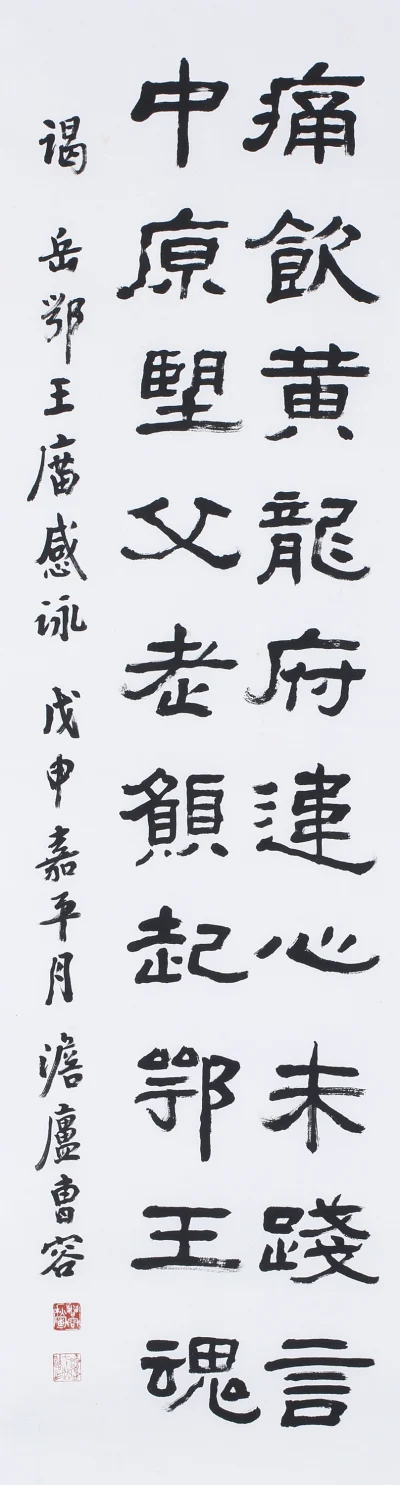 痛飲黄龍府違心未踐言
中原朢父老願起鄂王魂
謁 岳鄂王庿感詠 戊申嘉平月 澹廬曹容